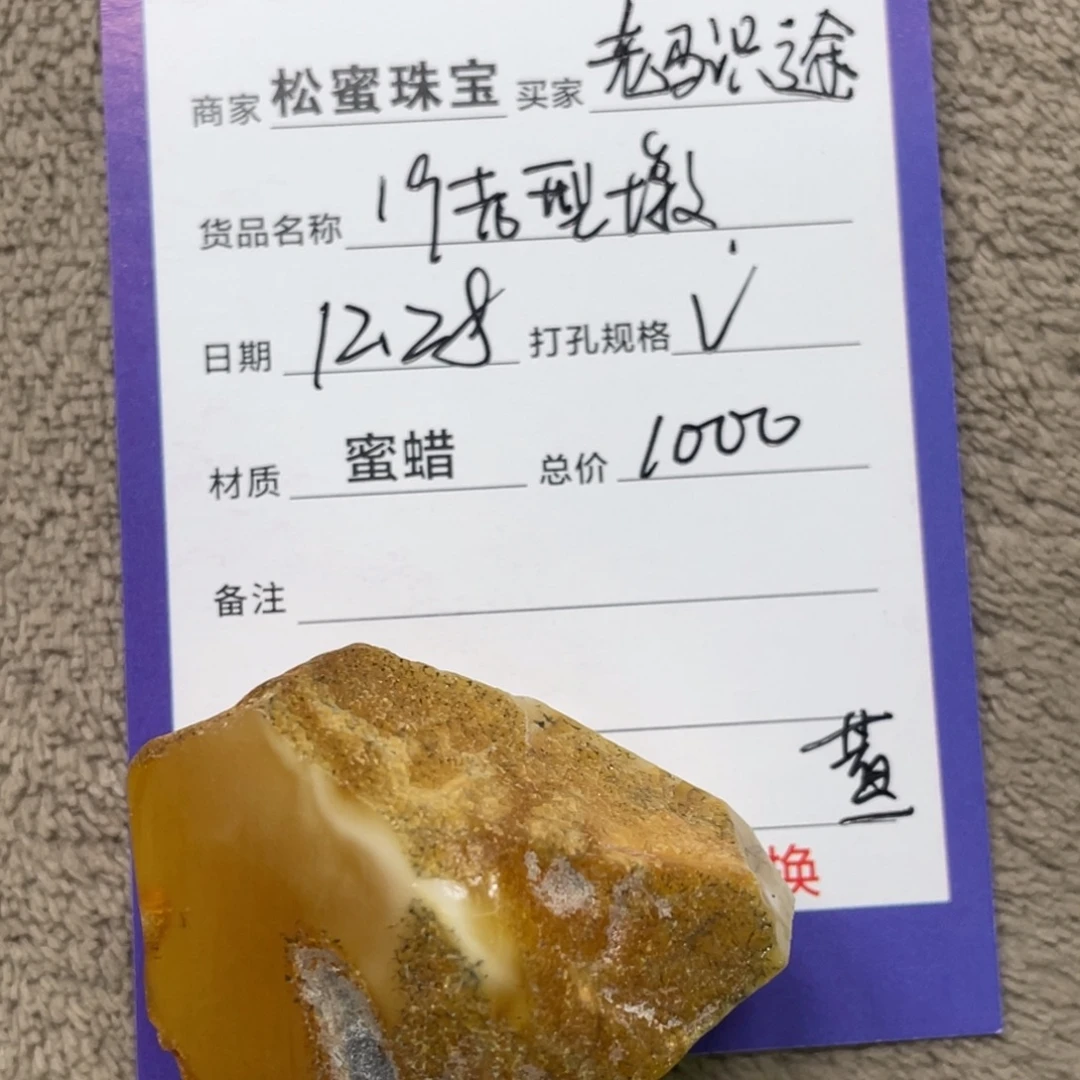 商家 松蜜珠宝 买家 老马识途
货品名称 19吉型墩
日期 12.28 打孔规格 √
材质 蜜蜡 总价 1000
备注
黄
换